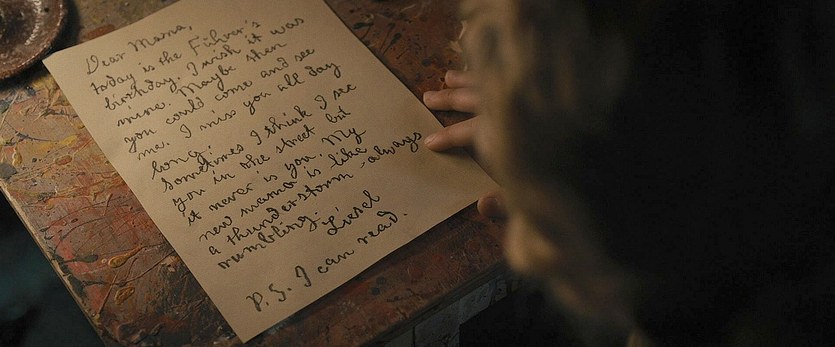 Dear Mama,
today is the Führer's
birthday. I wish it was
mine. Maybe then
you could come and see
me. I miss you all day
long.
Sometimes I think I see
you in the street but
it never is you. My
new mama is like
a thunderstorm - always
rumbling. Liesel
P.S. I can read.